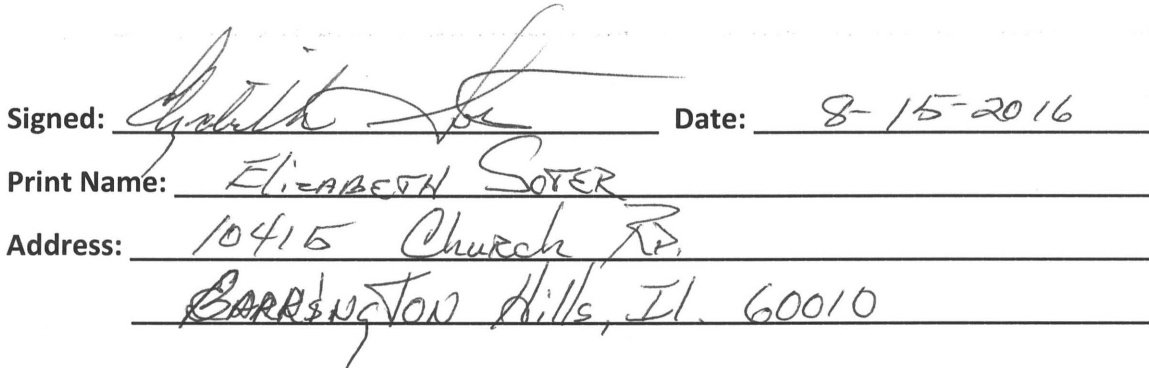 Signed: Elizabeth Soter Date: 8-15-2016
Print Name: ElizABETH SOTER
Address: 10415 ChuRch RD.
BARRINGTON Hills, Il. 60010